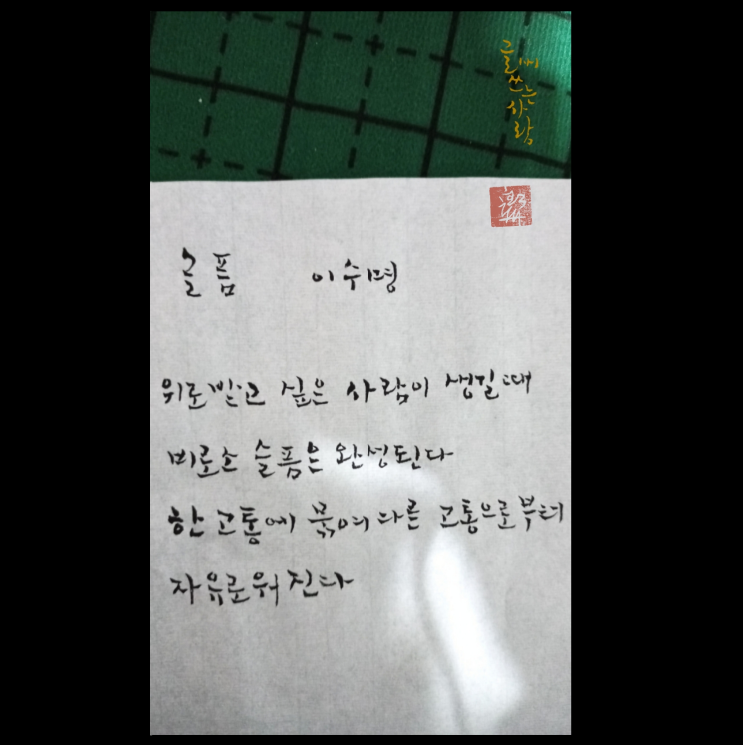 글씨
쓰는
사람
슬픔 이수명
위로받고 싶은 사람이 생길때
비로소 슬픔은 완성된다
한 고통에 묶여 다른 고통으로부터
자유로워진다